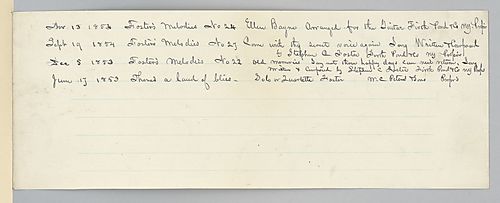 Nov 13 1853 Foster's Melodies No 24 Ellen Bayne Arranged for the Guitar Firth Pond & Co
Sept 19 1854 Foster's Melodies No 27 Come with thy sweet voice again Song Written & Composed
by Stephen C. Foster Firth Pond & Co
Dec 5 1853 Foster's Melodies No 22 Old memories Song
Written & Composed by Stephen C Foster Firth Pond & Co
June 17 1853 There's a land of bliss - Solo or Quartette Foster W.C. Peters & Sons